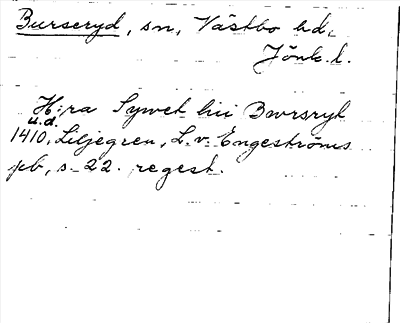 Burseryd, sn, Västbo hd,
Jönk. l.
H:ra Sywet hii Bwrsryt
u.d.
1410, Liljegren, L. v. Engeströms
pb, s. 22. regest.